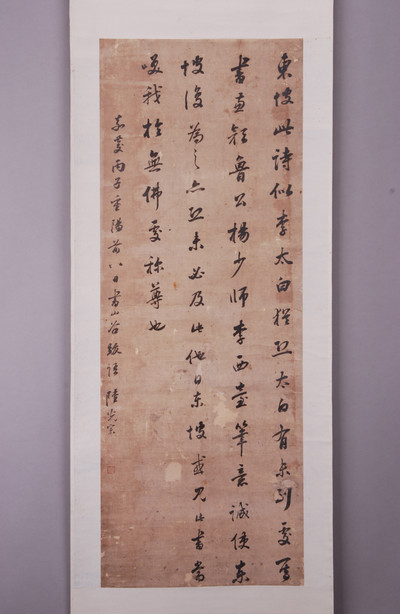 東坡此詩似李太白猶恐太白有未到處
書兼顏魯公楊少師李西臺筆意誠使東
坡復為之亦恐未必及此他日東坡或見此書當
咲我於無佛處稱尊也
嘉慶丙子重陽前八日書山谷跋語 陸